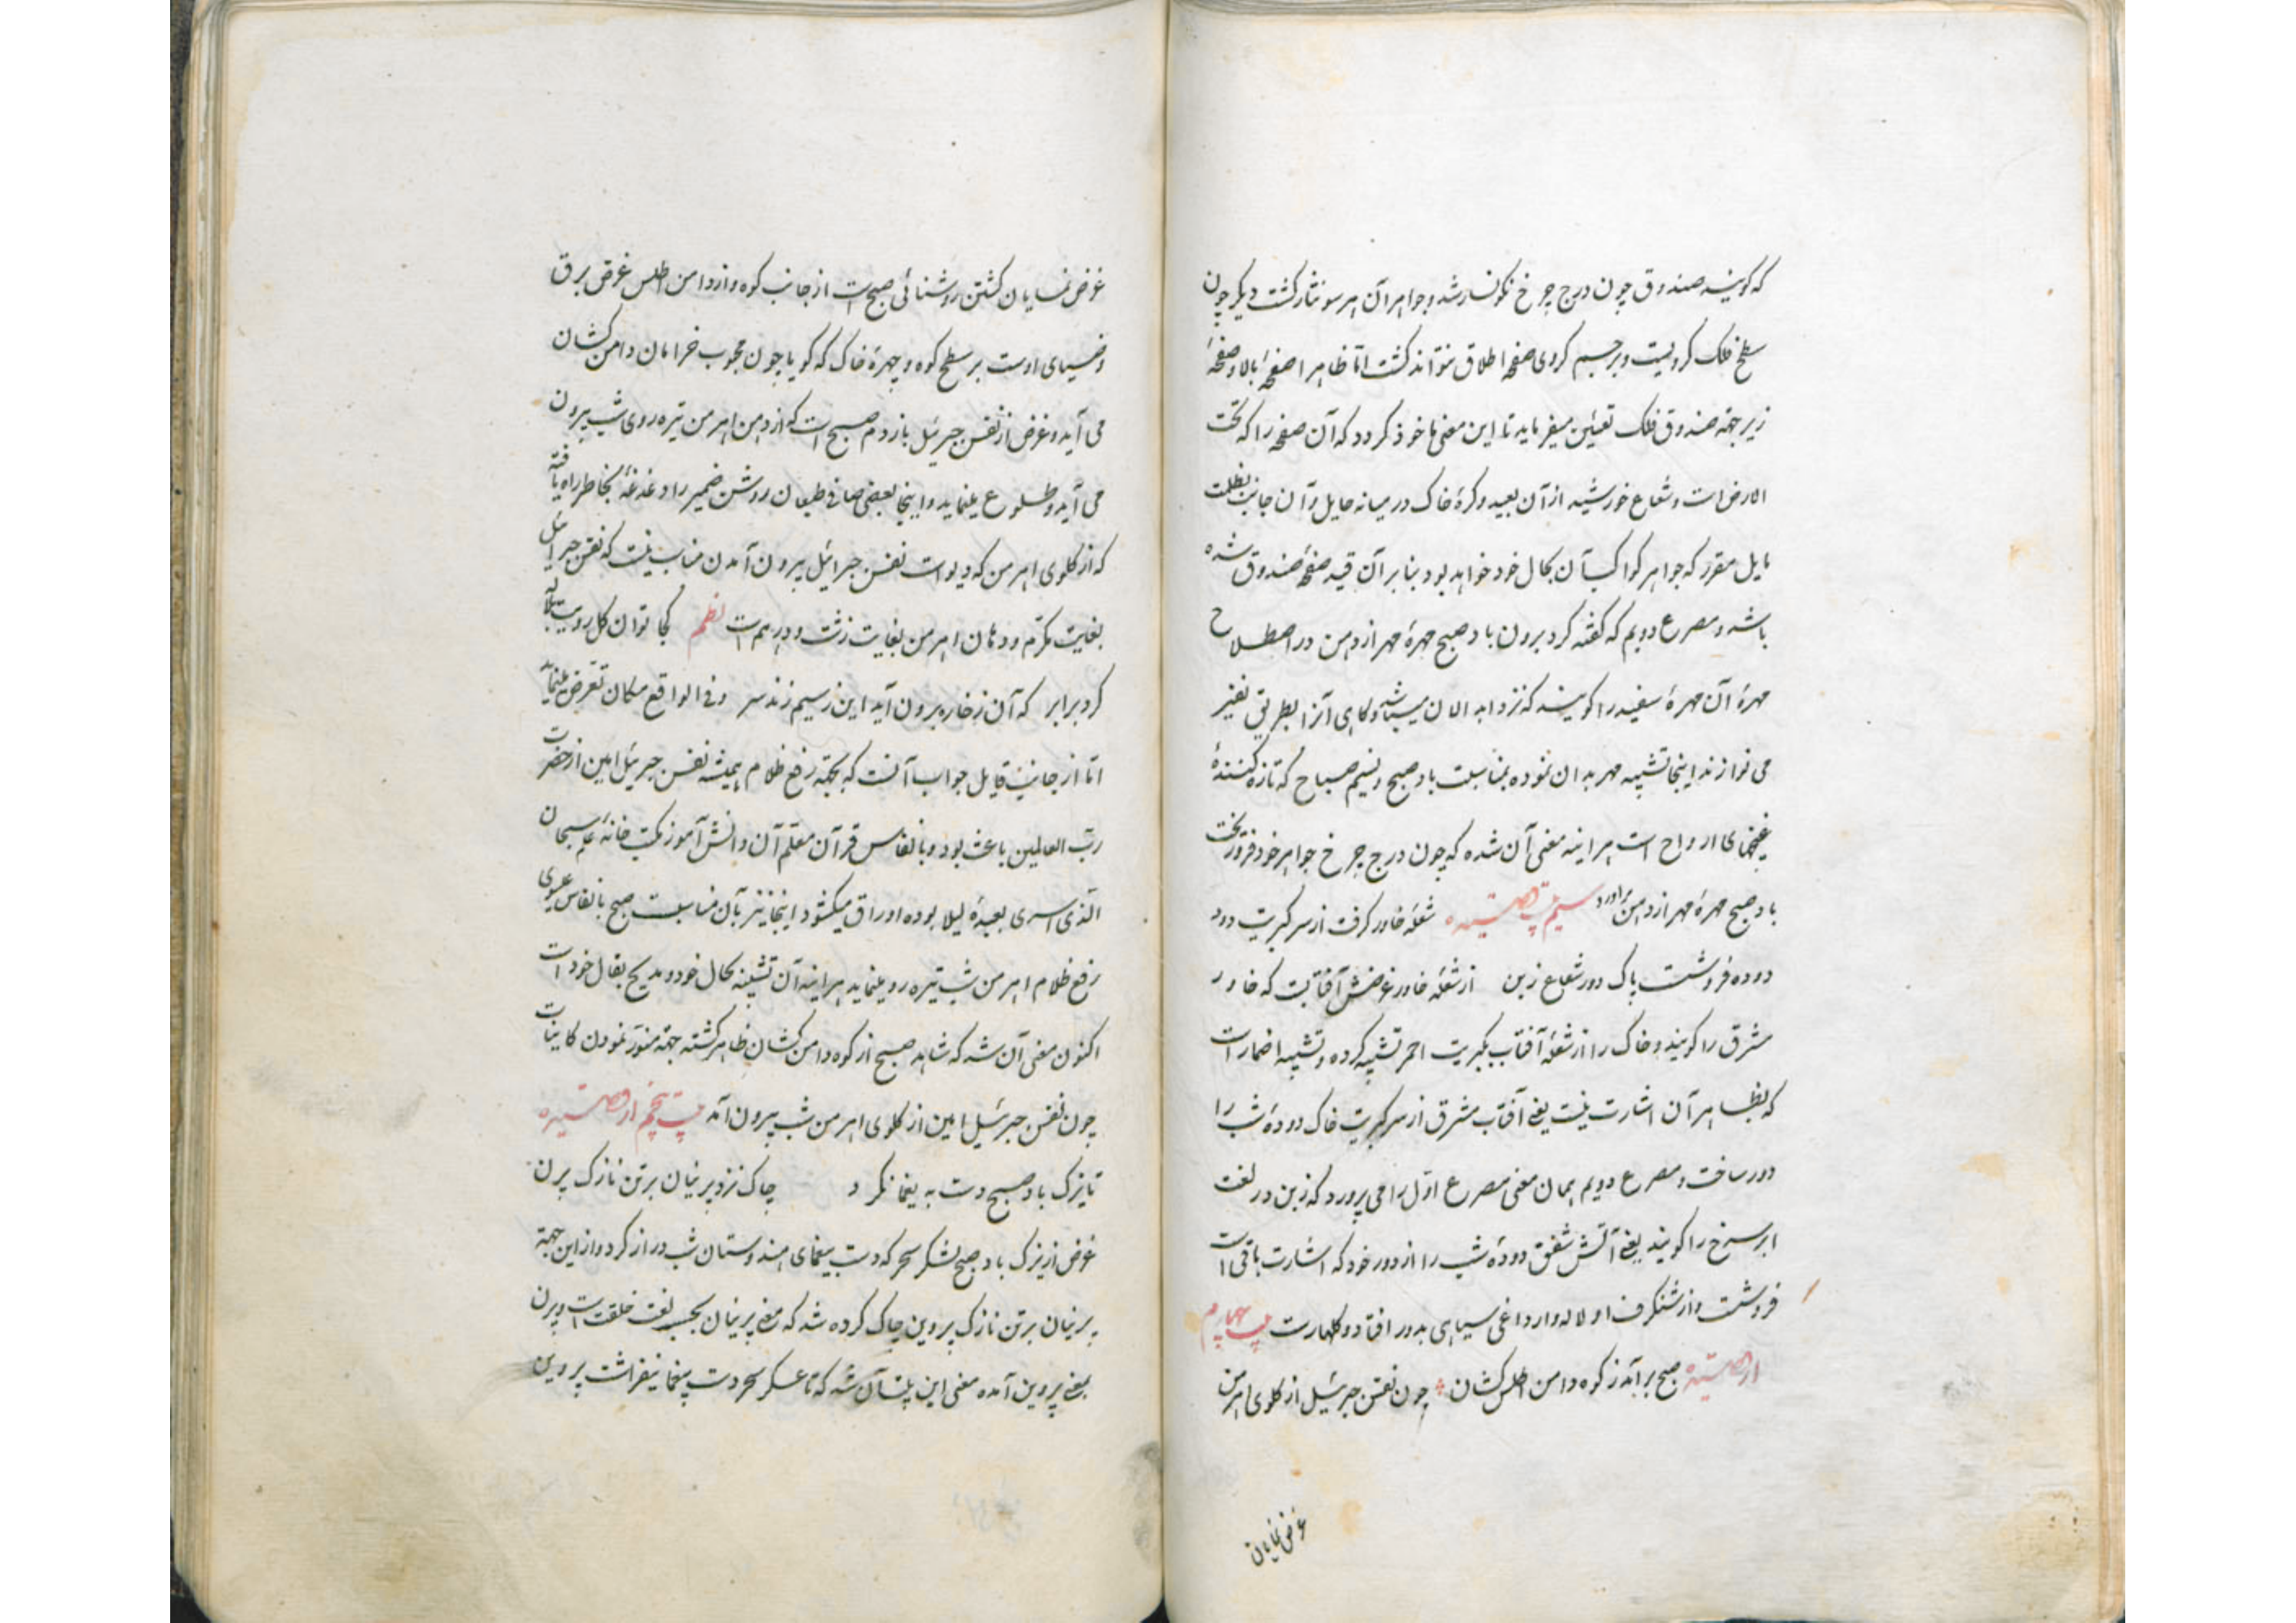 که گویند صندوق چون درج چرخ نگونسار شد و جواهر آن هر سو نثار گشت دیگر چون
سطح فلک کرویست و بر جسم کروی صفحه اطلاق نتواند گشت اما ظاهرا صفحهٔ بالا و صفحهٔ
زیر جهة صندوق فلک تعیین میفرماید تا این معنی ماخوذ گردد که آن صفحه را که تحت
الارض است و شعاع خورشید از آن بعید و کرهٔ خاک در میانه حایل و آن جانب بظلمت
مایل مقرر که جواهر کواکب آن بحال خود خواهد بود بنابر آن قید صفحهٔ صندوق شده
باشد و مصرع دویم که گفته کرد برون باد صبح مهرهٔ مهر از دهن در اصطلاح
مهرهٔ آن مهرهٔ سفید را گویند که نزد ابدالان میباشد و گاهی آنرا بطریق نفیر
می نوازند اینجا تشبیه مهر بدان نموده بمناسبت باد صبح و نسیم صباح که تازه کنندهٔ
غنچهای ارواح است هر اینه معنی آن شده که چون درج چرخ جواهر خود فرو ریخت
باد صبح مهرهٔ مهر از دهن برآورد شعلهٔ خاور گرفت از سر کبریت دود
دوده فروشست پاک دور شعاع زبن از شعلهٔ خاور غرضش آفتابست که خاور
مشرق را گویند و خاک را از شعلهٔ آفتاب بکبریت احمر تشبیه کرده و تشبیه اضمار است
که بظاهر آن اشارت نیست یعنی آفتاب مشرق از سر کبریت خاک دودهٔ شب را
دور ساخت و مصرع دویم همان معنی مصرع اول را می پرورد که زبن در لغت
ابر سرخ را گویند یعنی آتش شفق دودهٔ شب را از دور خود که اشارت باقی است
فروشست و از شنگرف او لاله وار داغی سیاهی بدور افتاد و کلهارت بیت چهارم
از قصیده صبح برآمد ز کوه دامن اطلس کشان چون نفس جبرئیل از گلوی اهرمن
غرض نمایان
غرض نمایان گشتن روشنائی صبح است از جانب کوه و از دامن اطلس غرض برق
و ضیای اوست بر سطح کوه و چهرهٔ خاک که گویا چون محبوب خرامان دامن کشان
می آید و غرض از نفس جبرئیل باز دم صبح است که از دهن اهرمن تیره روی شب بیرون
می آید و طلوع مینماید و اینجا بعضی صافی طبعان روشن ضمیر را دغدغهٔ بخاطر راه یافته
که از گلوی اهرمن که دیو است نفس جبرائیل بیرون آمدن مناسب نیست که نفس جبرائیل
بغایت مکرّم و دهان اهرمن بغایت زشت و درهم است نظم کجا توان گل رویت بلاله
کرد برابر که آن ز خاره برون آید این ز سیم زند سر و فی الواقع مکان تعرض مینماید
اما از جانب قایل جواب آنست که بجهة رفع ظلام همیشه نفس جبرئیل امین از حضرت
ربّ العالمین باعث بود و بانفاس قرآن معلّم آن دانش آموز مکتب خانهٔ علم سبحان
الّذی اسری بعبدهٔ لیلا بوده اوراق میکشود اینجا نیز بآن مناسبت صبح بانفاس عیسوی
رفع ظلام اهرمن شب تیره رو مینماید هر اینه آن تشبیه بحال خود و مدیح بقال خود است
اکنون معنی آن شد که شاهد صبح از کوه دامن کشان ظاهر گشته جهة منوّر نمودن کاینات
چون نفس جبرئیل امین از گلوی اهرمن شب بیرون آمد بیت پنجم از قصیده
تا یزک باد صبح دست به یغما نکرد چاک نزد پرنیان بر تن نازک پرن
غرض از یزک باد صبح لشکر سحر که دست بیغمای هندوستان شب دراز کرد و از این جهة
پرنیان بر تن نازک پروین چاک کرده شد که معنی پرنیان بحسب لغت خلقت است و پرن
بمعنی پروین آمده معنی این بیت آن شد که تا عسکر سحر دست یغما نیفراشت پروین